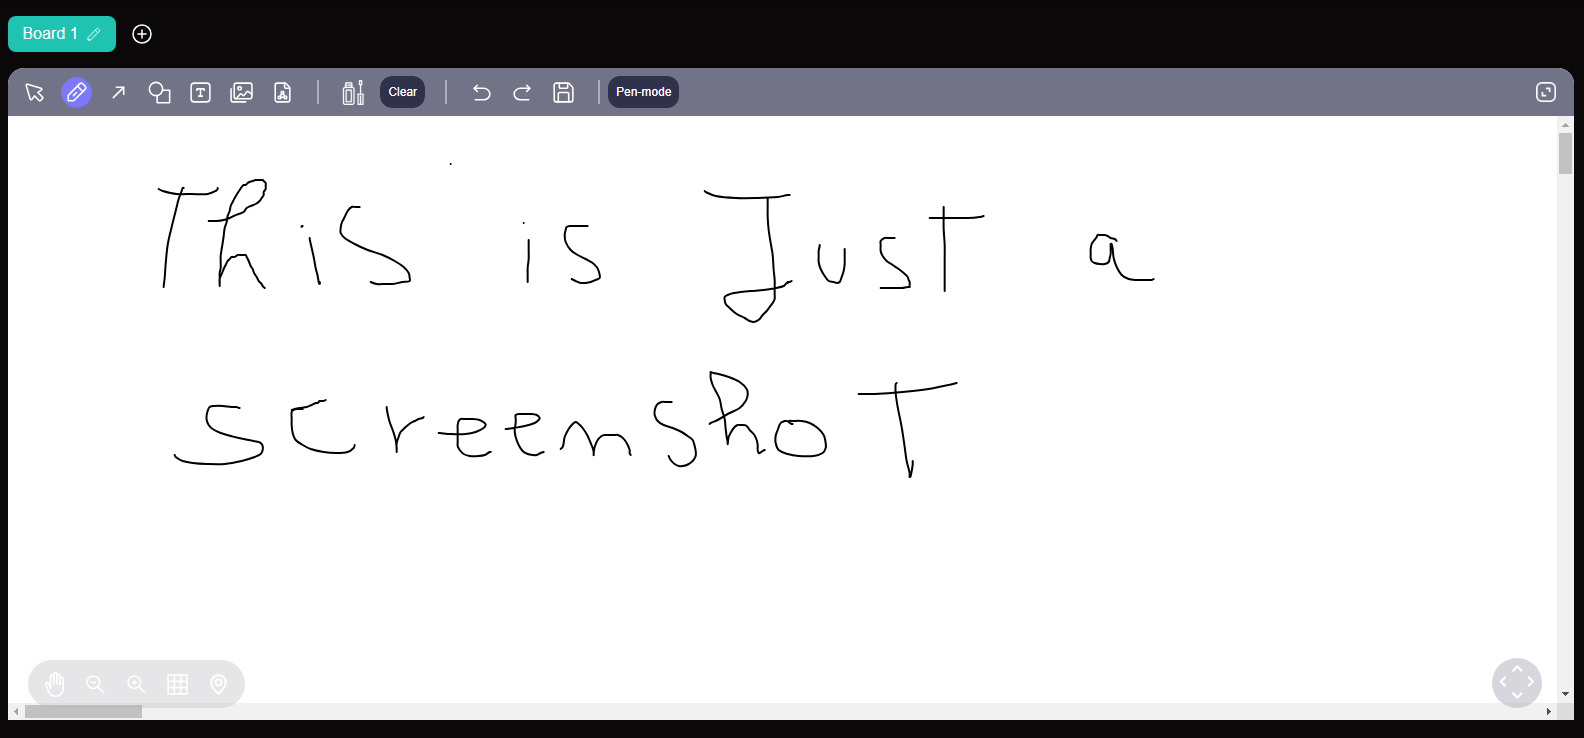 Board 1
Clear
Pen-mode
This is Just a
screenshoT